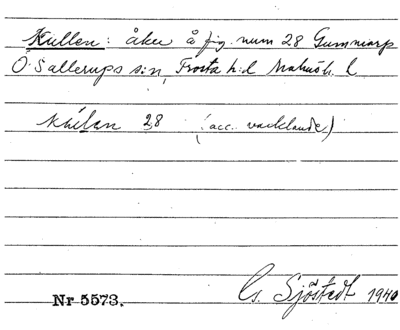 Kullen: åker å fig. num 28 Gummarp
Ö. Sallerups s:n, Frosta h:d Malmöh. l
28 (acc. vacklande)
Nr 5573. G. Sjöstedt 1940